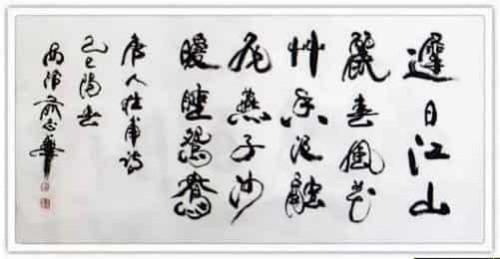 遲日江山
麗春風花
艸香泥融
飛燕子沙
暖睡鴛鴦
唐人杜甫詩
己巳陽春
俞志華